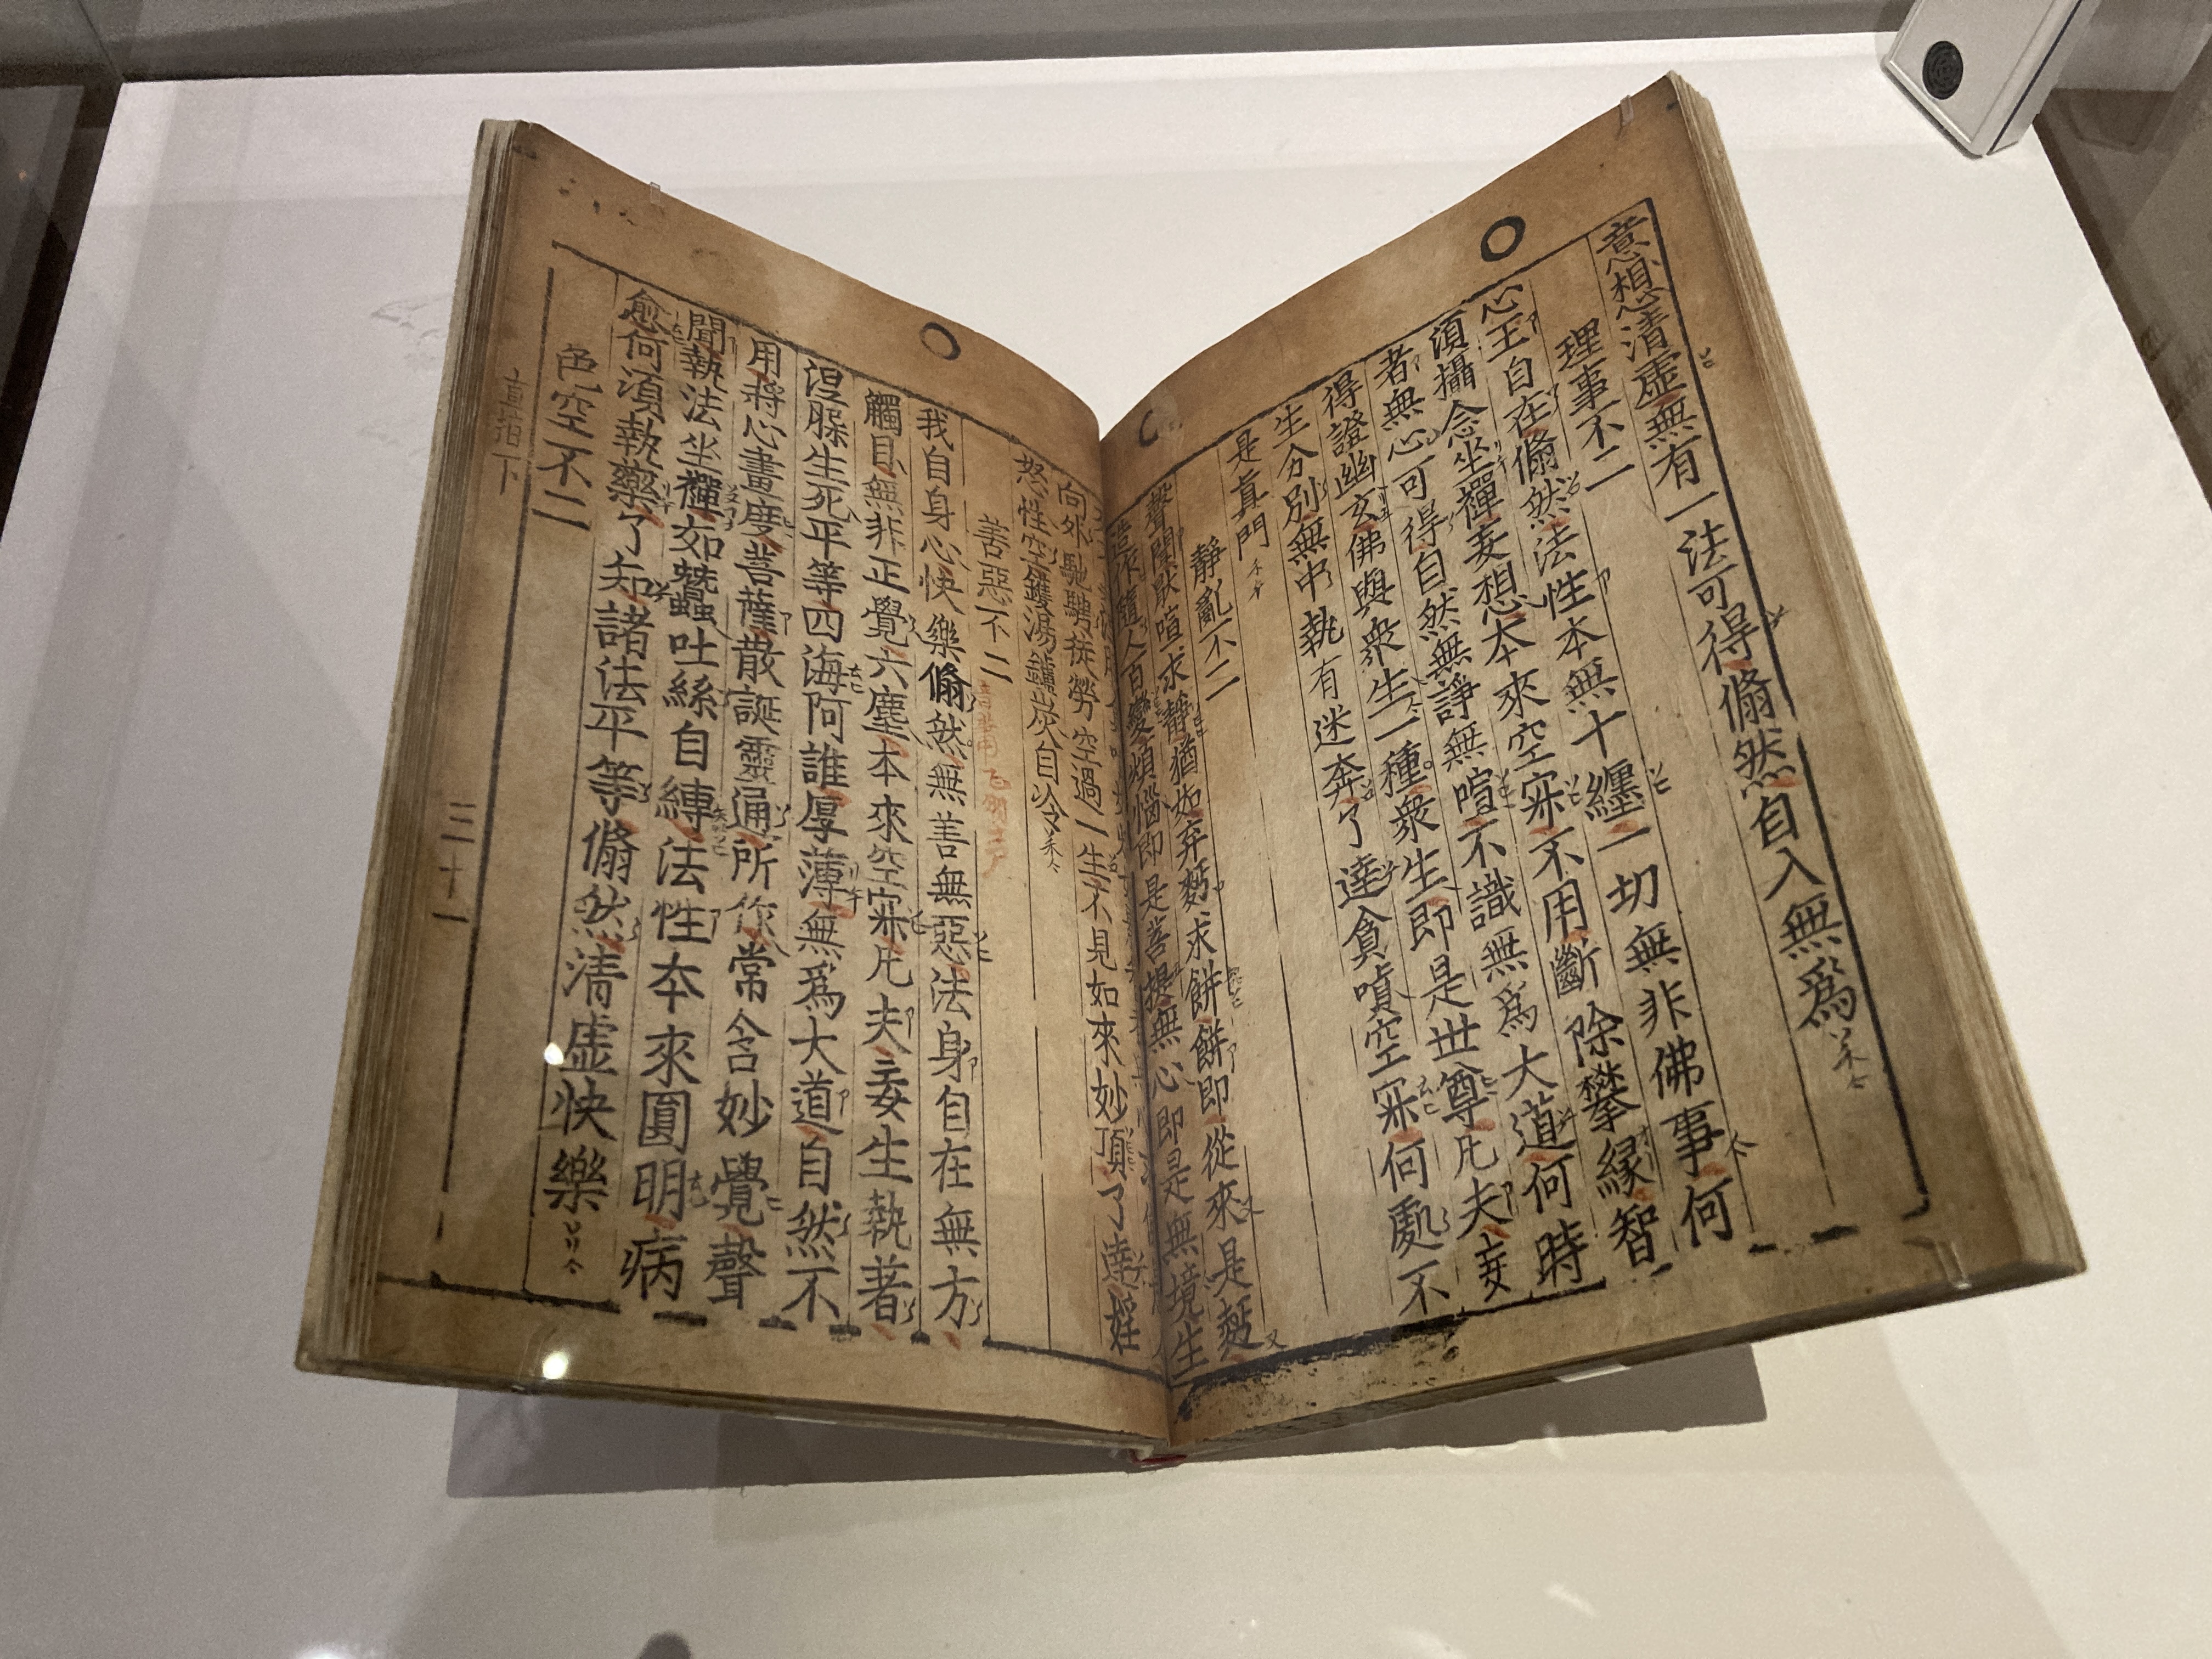 意想清虛無有一法可得翛然自入無爲
理事不二
心王自在翛然法性本無十纏一切無非佛事何
須攝念坐禪妄想本來空寂不用斷除攀緣智
者無心可得自然無諍無喧不識無爲大道何時
得證幽玄佛與衆生一種衆生即是世尊凡夫妄
生分別無中執有迷奔了達貪嗔空寂何處不
是眞門
靜亂不二
聲聞猒喧求靜猶如弃麪求餅餅即從來是麪
造作隨人百變煩惱即是菩提無心即是無境生
向外馳騁徒勞空過一生不見如來妙頂了達婬
怒性空鑊湯鑪炭自冷
善惡不二
我自身心快樂翛然無善無惡法身自在無方
觸目無非正覺六塵本來空寂凡夫妄生執著
涅槃生死平等四海阿誰厚薄無爲大道自然不
用將心畫度菩薩散誕靈通所作常含妙覺聲
聞執法坐禪如蠶吐絲自縛法性本來圓明病
愈何須執藥了知諸法平等翛然清虛快樂
色空不二
直指下
三十一